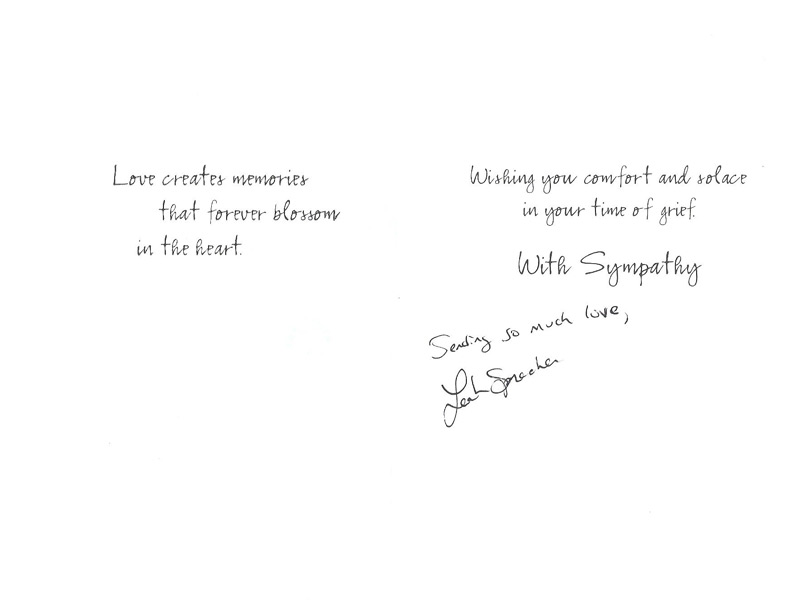 Love creates memories
that forever blossom
in the heart.
Wishing you comfort and solace
in your time of grief.
With Sympathy
Sending so much love,
Leah